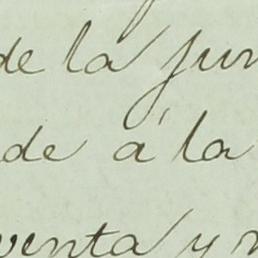 de la jun
de á la
venta y n